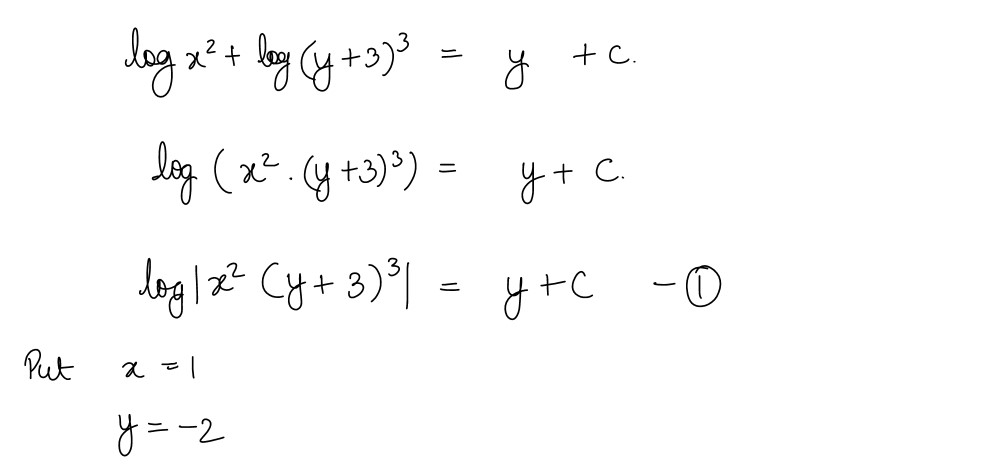 log x² + log (y+3)³ = y + c.
log ( x² . (y+3)³) = y + c.
log |x² (y+3)³| = y+c - ①
Put x = 1
y = -2